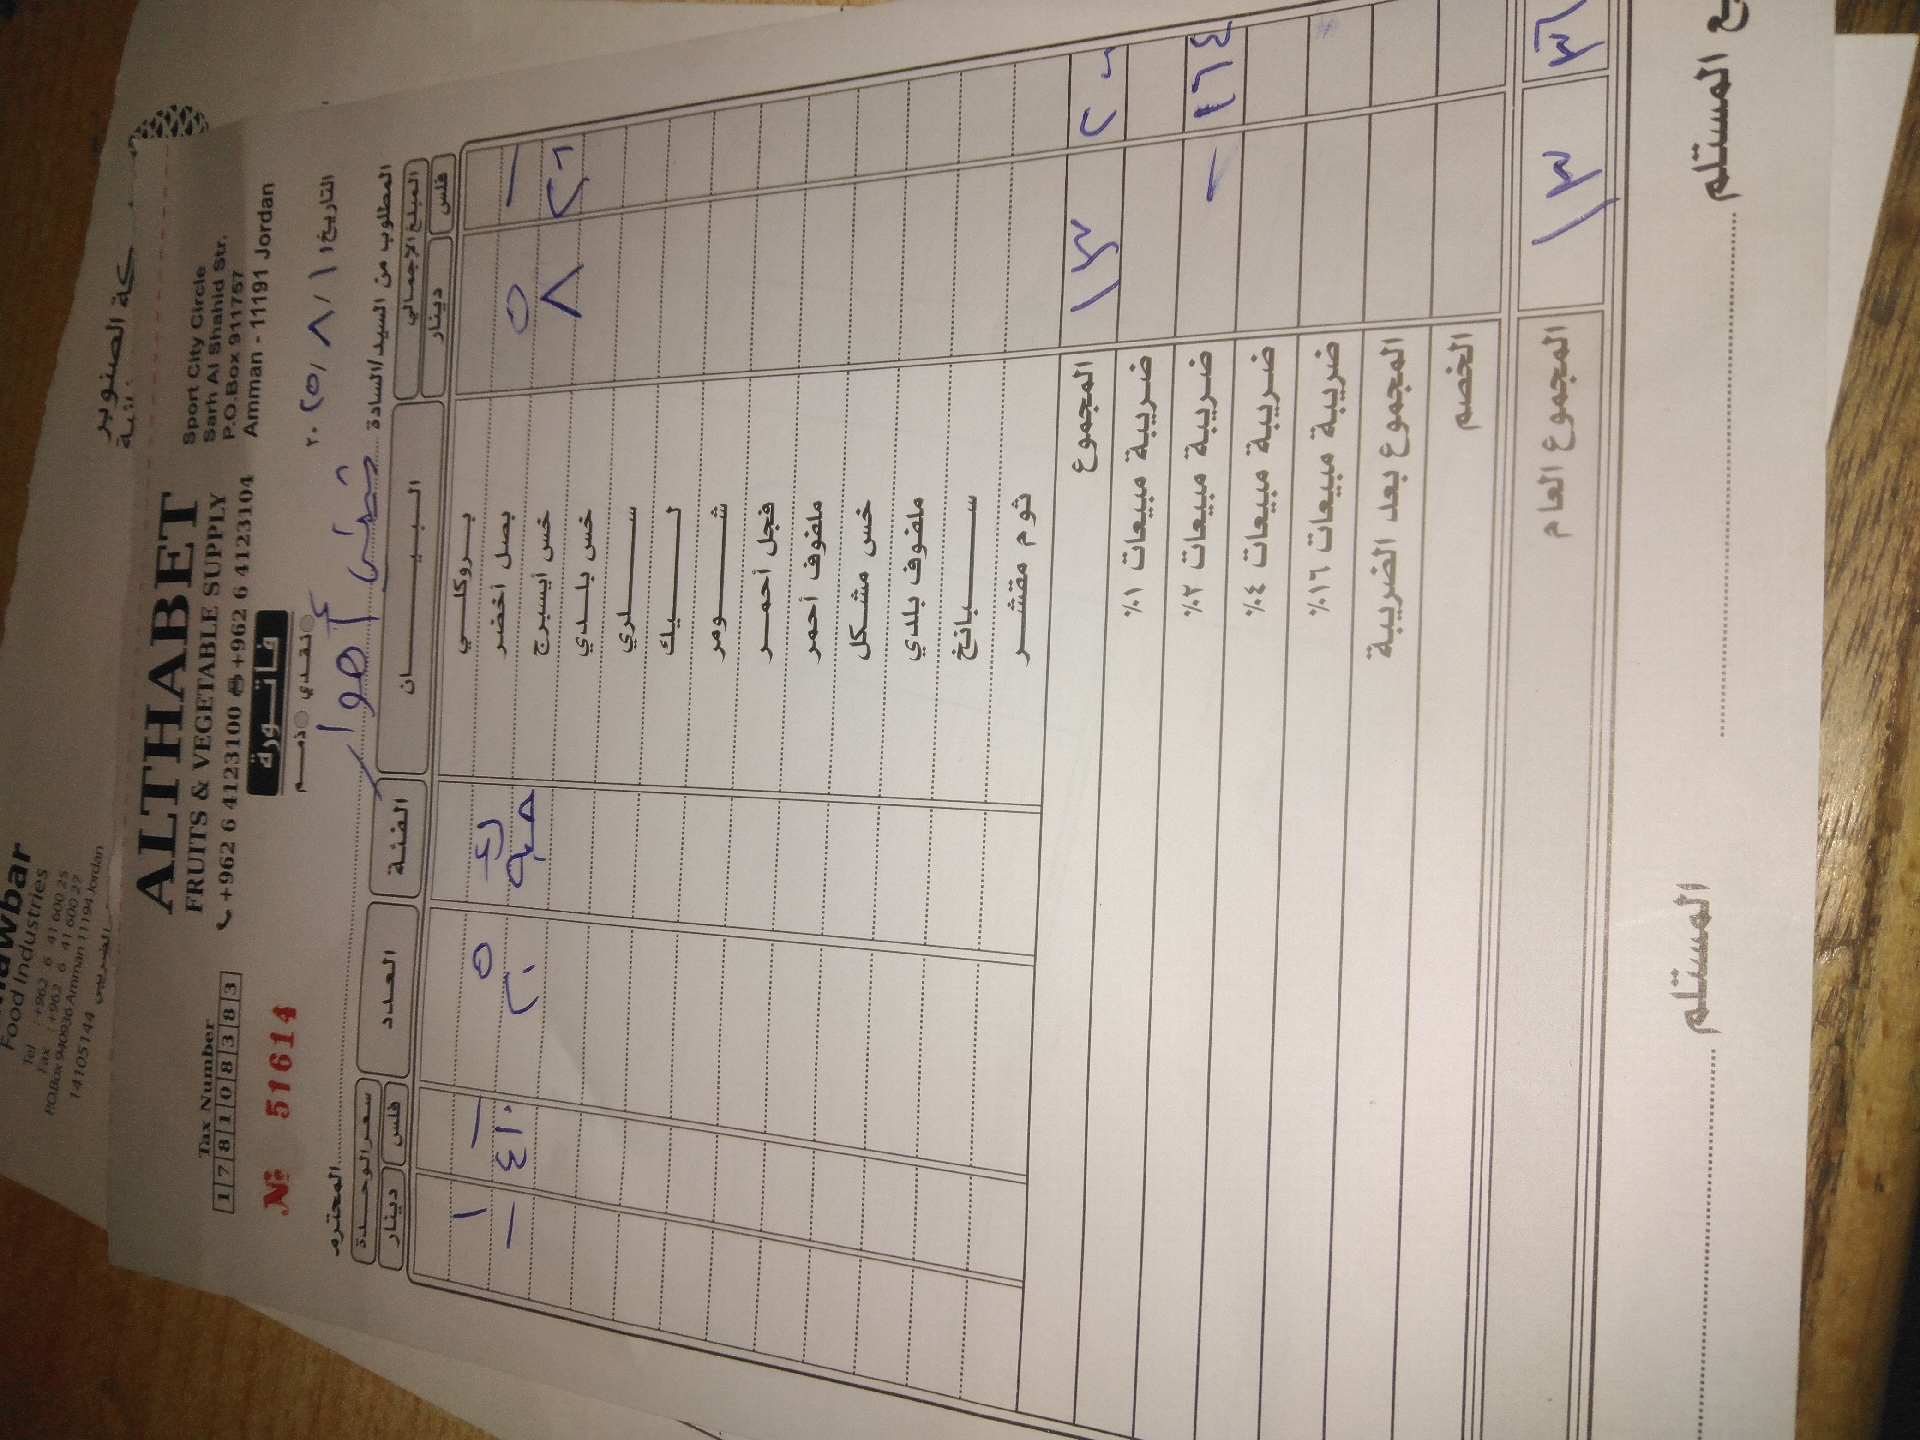 Food Industries
Tel : +962 6 41 600 25
Fax : +962 6 41 600 27
P.O.Box 940936 Amman 11194 Jordan
14105144
ALTHABET
FRUITS & VEGETABLE SUPPLY
+962 6 4123100 +962 6 4123104
Sport City Circle
Sarh Al Shahid Str.
P.O.Box 911757
Amman - 11191 Jordan
Tax Number
178108383
№ 51614
فاتورة
نقدي ذمم
التاريخ ١ / ٨ / ٢٠٢٥
المطلوب من السيد/السادة المحترم
المبلغ الاجمالي البيان الفئة العدد سعر الوحدة
دينار فلس دينار فلس
بروكلي
٥ — بصل أخضر ٥ ١ —
٨ ٢٠٠ خس أيسبرج حبه ٢٠ — ٤١٠
خس بلدي
سلري
ليك
شومر
فجل أحمر
ملفوف أحمر
خس مشكل
ملفوف بلدي
سبانخ
ثوم مقشر
المجموع ١٣ ٢٠٠
ضريبة مبيعات ١٪
ضريبة مبيعات ٢٪ — ١٦٤
ضريبة مبيعات ٤٪
ضريبة مبيعات ١٦٪
المجموع بعد الضريبة
الخصم
المجموع العام ١٣
المستلم
المستلم